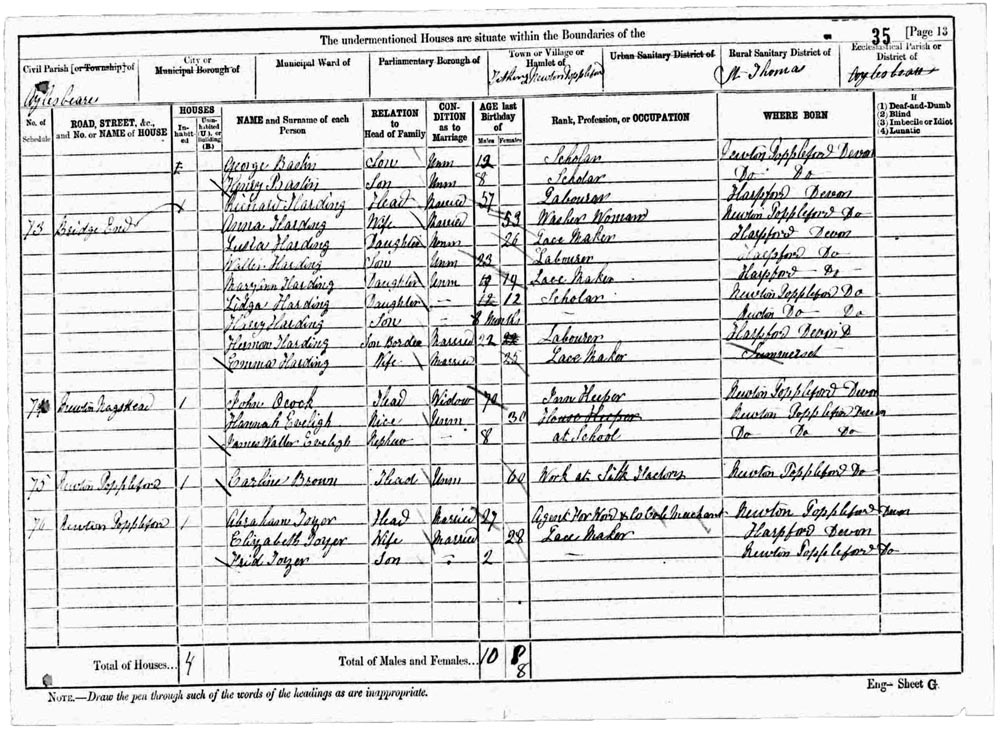 35 [Page 13
The undermentioned Houses are situate within the Boundaries of the
Civil Parish [or Township] of
City or Municipal Borough of
Municipal Ward of
Parliamentary Borough of
Town or Village or Hamlet of
Urban Sanitary District of
Rural Sanitary District of
Ecclesiastical Parish or District of
Aylesbeare
Tithing Newton Poppleford
St Thomas
Aylesbeare
No. of Schedule
ROAD, STREET, &c., and No. or NAME of HOUSE
HOUSES
In-habit-ed
Unin-habited (U.), or Building (B.)
NAME and Surname of each Person
RELATION to Head of Family
CON-DITION as to Marriage
AGE last Birthday of
Males Females
Rank, Profession, or OCCUPATION
WHERE BORN
If
(1) Deaf-and-Dumb
(2) Blind
(3) Imbecile or Idiot
(4) Lunatic
George Son Unm 12 Scholar Newton Poppleford Devon
Henry Son Unm 8 Scholar Do Do
Harding Head Married 57 Labourer Harpford Devon
73 Bridge End Anna Harding Wife Married 53 Washer Woman Newton Poppleford Do
Harding Daughter Unm 26 Lace Maker Harpford Devon
Walter Harding Son Unm 23 Labourer Harpford Do
Maryann Harding Daughter Unm 19 19 Lace Maker Harpford Do
Harding Daughter — 12 12 Scholar Newton Poppleford Do
Harry Harding Son — 8 Months — Do Do
Harding Son Border Married 22 22 Labourer Harpford Devon
Emma Harding Wife Married 25 Lace Maker Summerset
Newton Nagshead 1 John Head Widow 70 Inn Keeper Newton Poppleford Devon
Hannah Eveligh Nice Unm 30 House Keeper Newton Poppleford Devon
James Walter Eveligh Nephew — 8 at School Do Do Do
75 Newton Poppleford 1 Carline Brown Head Unm 60 Work at Silk Factory Newton Poppleford Do
Newton Poppleford 1 Abraham Tozer Head Married 27 Agent For & Co Merchant Newton Poppleford Devon
Elizabeth Tozer Wife Married 28 Lace Maker Harpford Devon
Frid Tozer Son 2 — Newton Poppleford Do
Total of Houses... 4
Total of Males and Females... 10 8
8
NOTE.—Draw the pen through such of the words of the headings as are inappropriate.
Eng— Sheet G.